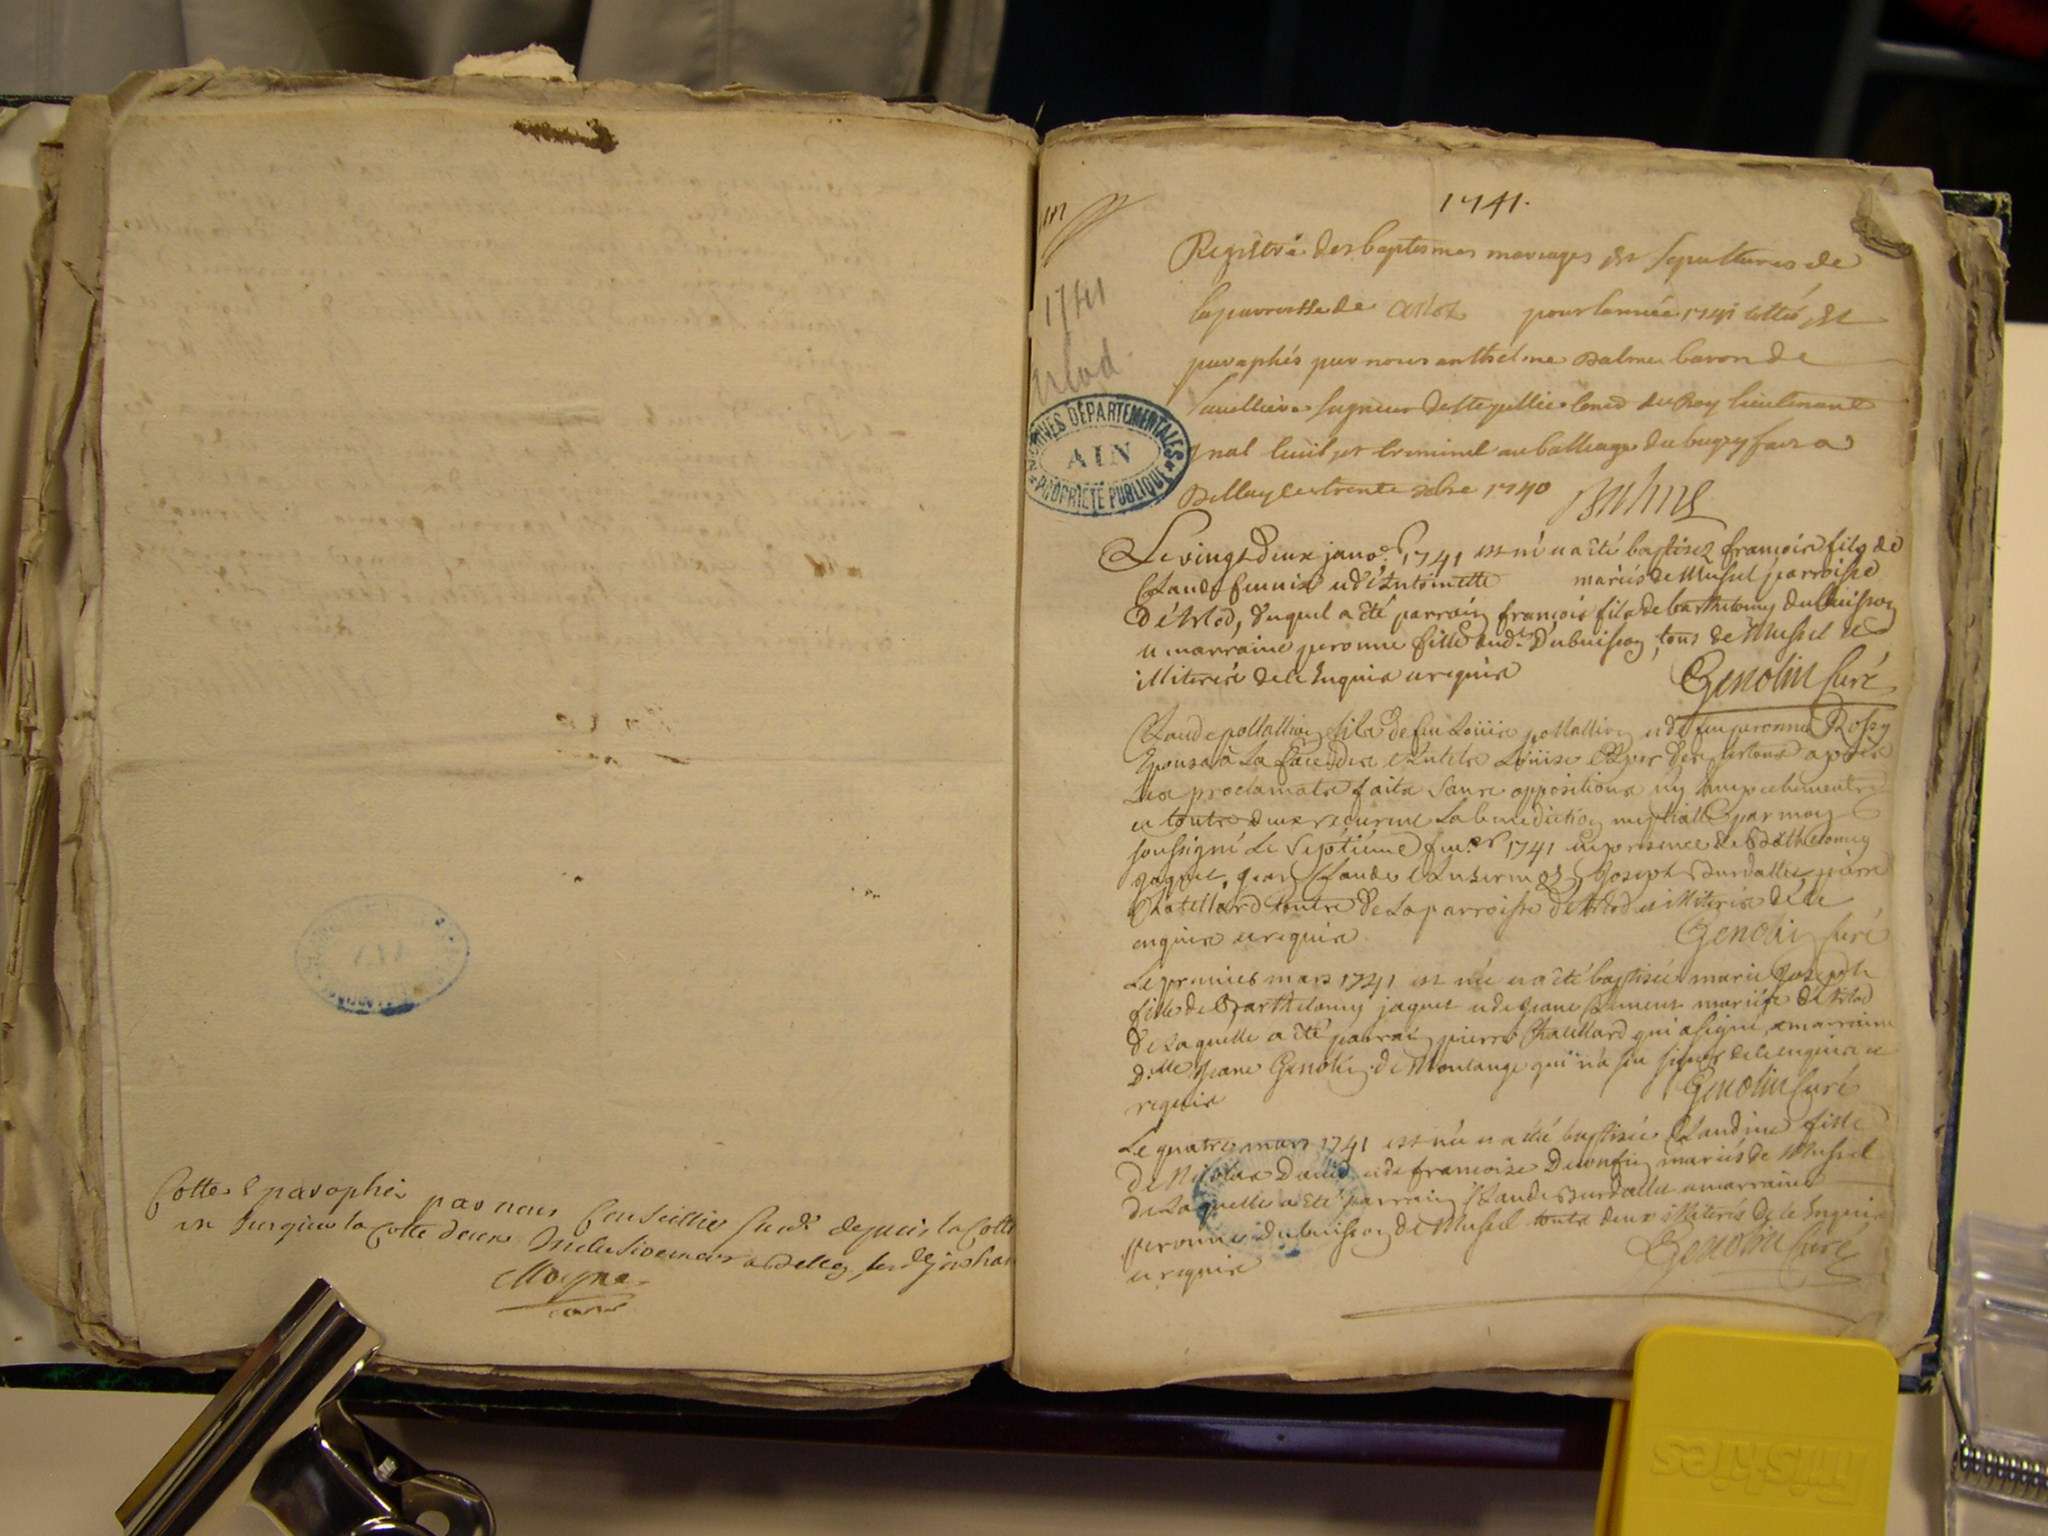 Cottes & paraphés par nous Conseillier susd. depuis la Cotte
un Jusques la Cotte deux Inclusivement a Belley
Moyne
1741
arlod
ARCHIVES DÉPARTEMENTALES
AIN
PROPRIÉTÉ PUBLIQUE
1741.
Registre des baptesmes mariages et sepultures de
la parroisse de Arlod pour lannée 1741 cotté et
paraphés par nous anthelme Balme baron de
seigneur de Conser du Roy lieutenant
gnal civil et criminel au balliage du bugey fait a
Belley le trente xbre 1740 Balme
Le vingt deux janvr 1741 est né et a été baptisez françois fils de
Claude et d'Antoinette mariés de Mussel parroisse
d'Arlod, duquel a été parrain françois fils de barthelemy Dubuisson
et marraine peronne fille dudt Dubuisson, tous de Mussel et
illiterés de ce enquis et requis Genolin Curé
Claude fils de feu Louis et de feu peronne Rossy
Epousa à La face des Louise après
Les proclamats faits sans oppositions ny empechements
et touts deux receurent La benediction nuptialle par moy
soussigné Le septiéme 1741 en presence de Bathelemy
jaquet, jean Claude Joseph Burdallet, pierre
Chatillard touts de La parroisse d'Arlod et illiterés de ce
enquis et requis Genolin Curé
Le premier mars 1741 est née et a été baptisée marie Joseph
fille de Barthelemy jaquet et de jeane mariés d'Arlod
de Laquelle a été parrain pierre Chatillard qui a signé, et marraine
d.lle Jeane Genolin de Montange qui n'a sçu signer de ce enquise et
requise Genolin Curé
Le quatre mars 1741 est née et a été baptisée Claudine fille
de Nicolas David et de françoise mariés de Mussel
de Laquelle a été parrain Claude Burdallet et marraine
peronne dubuisson de Mussel touts deux illiterés de ce Enquis
et requis Genolin Curé
Friskies